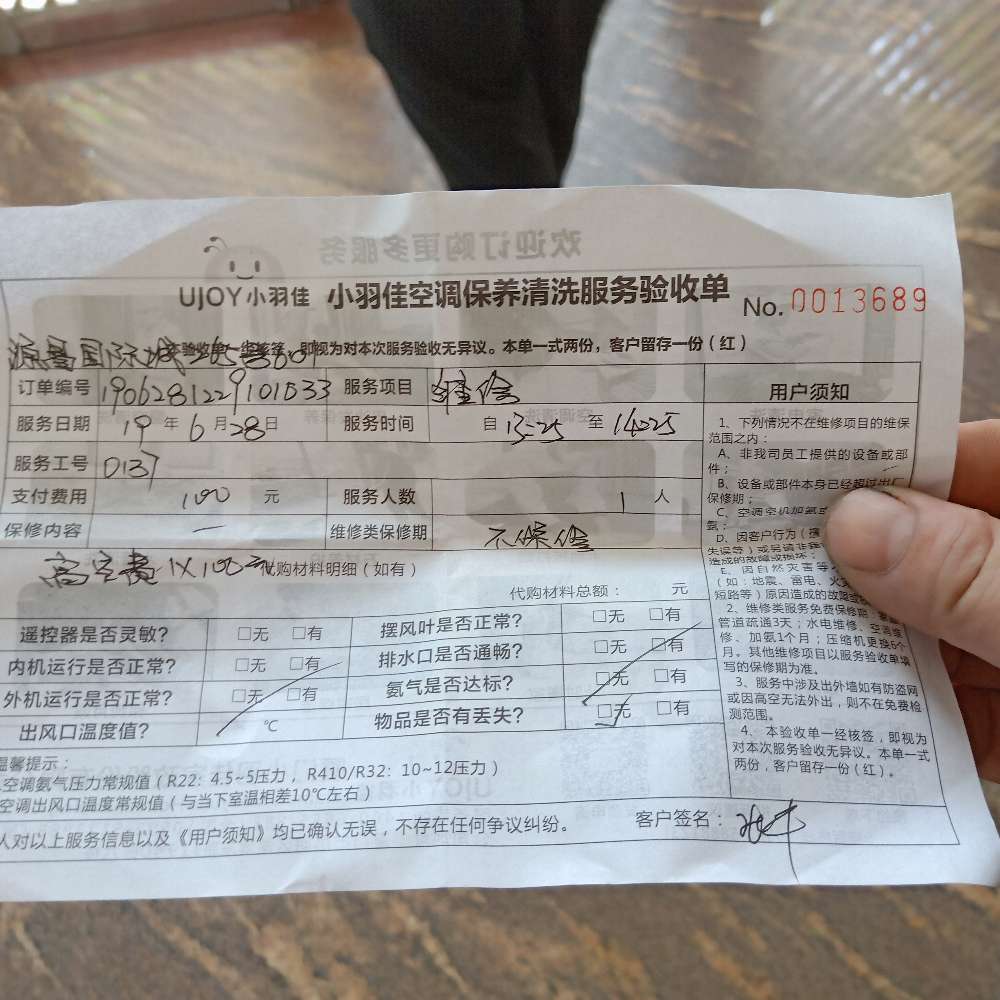 欢迎订购更多服务
UJOY小羽佳 小羽佳空调保养清洗服务验收单 No. 0013689
源昌国际城
本验收单一经核签，即视为对本次服务验收无异议。本单一式两份，客户留存一份（红）
订单编号 服务项目 维修
服务日期 19 年 6 月 28 日 服务时间 自 13:25 至 14:25
服务工号 0137
支付费用 100 元 服务人数 1 人
保修内容 — 维修类保修期 不保修
高空费1X100元 代购材料明细（如有）
代购材料总额： 元
遥控器是否灵敏？ □无 □有 摆风叶是否正常？ □无 □有
内机运行是否正常？ □无 □有 排水口是否通畅？ □无 □有
外机运行是否正常？ □无 □有 氨气是否达标？ □无 □有
出风口温度值？ ℃ 物品是否有丢失？ □无 □有
温馨提示：
空调氨气压力常规值（R22：4.5~5压力，R410/R32：10~12压力）
空调出风口温度常规值（与当下室温相差10℃左右）
人对以上服务信息以及《用户须知》均已确认无误，不存在任何争议纠纷。 客户签名：
用户须知
1、下列情况不在维修项目的维保
范围之内：
A、非我司员工提供的设备或部
件；
B、设备或部件本身已经超过出厂
保修期；
C、空调空机加氨或
氨；
D、因客户行为（
失误等）或另请非我
造成的故障或损坏；
E、因自然灾害等
（如：地震、雷电、火灾
短路等）原因造成的故障或
2、维修类服务免费保修期：
管道疏通3天；水电维修、空调维
修、加氨1个月；压缩机更换6个
月。其他维修项目以服务验收单填
写的保修期为准。
3、服务中涉及出外墙如有防盗网
或因高空无法外出，则不在免费检
测范围。
4、本验收单一经核签，即视为
对本次服务验收无异议。本单一式
两份，客户留存一份（红）。